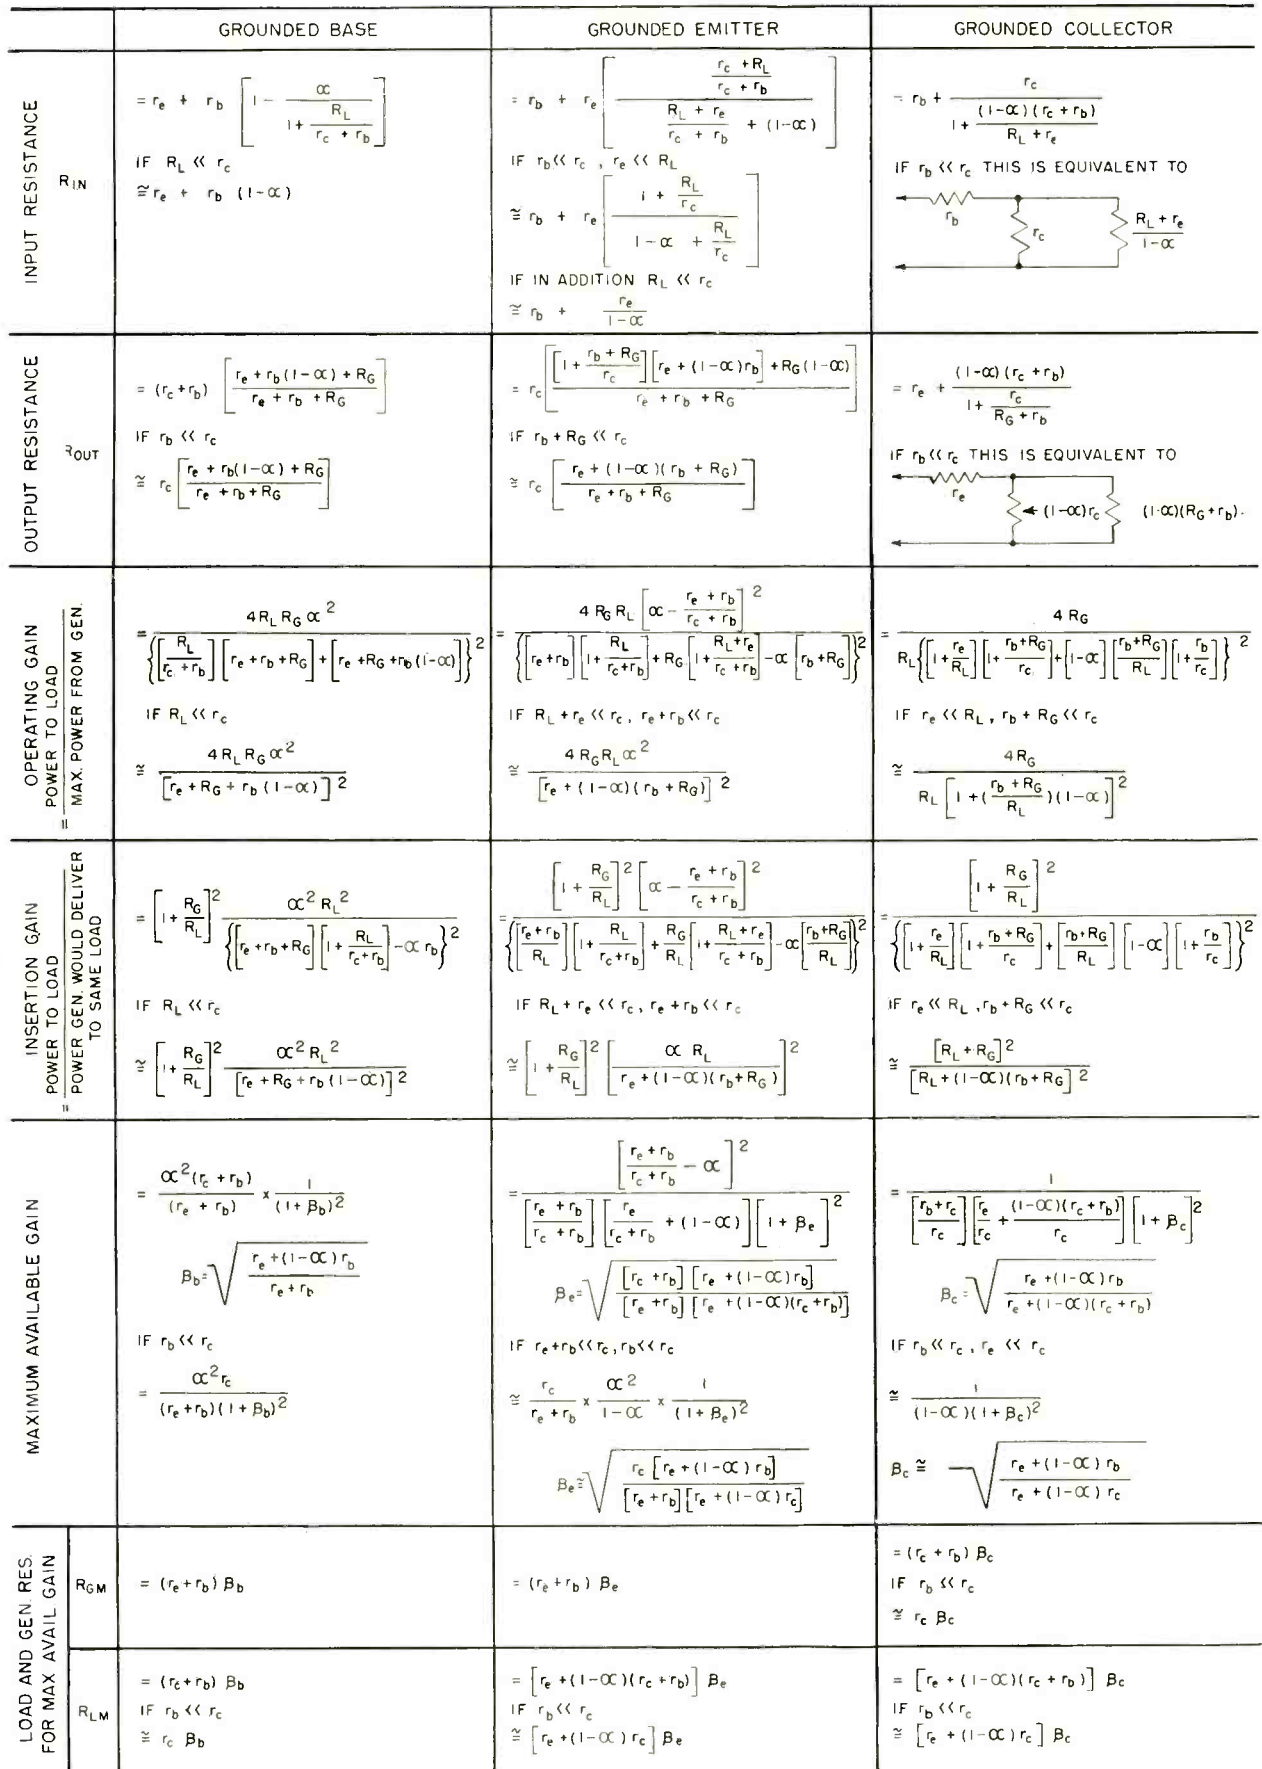 GROUNDED BASE
GROUNDED EMITTER
GROUNDED COLLECTOR
INPUT RESISTANCE
R_IN
= r_e + r_b [1 - α / (1 + R_L / (r_c + r_b))]
IF R_L << r_c
≅ r_e + r_b (1-α)
= r_b + r_e [((r_c + R_L) / (r_c + r_b)) / ((R_L + r_e) / (r_c + r_b) + (1-α))]
IF r_b << r_c , r_e << R_L
≅ r_b + r_e [(1 + R_L / r_c) / (1-α + R_L / r_c)]
IF IN ADDITION R_L << r_c
≅ r_b + r_e / (1-α)
= r_b + r_c / (1 + (1-α)(r_c + r_b) / (R_L + r_e))
IF r_b << r_c THIS IS EQUIVALENT TO
r_b
r_c
(R_L + r_e) / (1-α)
OUTPUT RESISTANCE
R_OUT
= (r_c + r_b) [(r_e + r_b (1-α) + R_G) / (r_e + r_b + R_G)]
IF r_b << r_c
≅ r_c [(r_e + r_b(1-α) + R_G) / (r_e + r_b + R_G)]
= r_c [([1 + (r_b + R_G) / r_c] [r_e + (1-α)r_b] + R_G (1-α)) / (r_e + r_b + R_G)]
IF r_b + R_G << r_c
≅ r_c [(r_e + (1-α)(r_b + R_G)) / (r_e + r_b + R_G)]
= r_e + (1-α)(r_c + r_b) / (1 + r_c / (R_G + r_b))
IF r_b << r_c THIS IS EQUIVALENT TO
r_e
(1-α)r_c
(1-α)(R_G + r_b).
OPERATING GAIN
= POWER TO LOAD / MAX. POWER FROM GEN.
= 4 R_L R_G α² / {[R_L / (r_c + r_b)] [r_e + r_b + R_G] + [r_e + R_G + r_b (1-α)]}²
IF R_L << r_c
≅ 4 R_L R_G α² / [r_e + R_G + r_b (1-α)]²
= 4 R_G R_L [α - (r_e + r_b) / (r_c + r_b)]² / {[r_e + r_b] [1 + R_L / (r_c + r_b)] + R_G [1 + (R_L + r_e) / (r_c + r_b)] - α [r_b + R_G]}²
IF R_L + r_e << r_c , r_e + r_b << r_c
≅ 4 R_G R_L α² / [r_e + (1-α)(r_b + R_G)]²
= 4 R_G / R_L {[1 + r_e / R_L] [1 + (r_b + R_G) / r_c] + [1-α] [(r_b + R_G) / R_L] [1 + r_b / r_c]}²
IF r_e << R_L , r_b + R_G << r_c
≅ 4 R_G / R_L [1 + ((r_b + R_G) / R_L)(1-α)]²
INSERTION GAIN
= POWER TO LOAD / POWER GEN. WOULD DELIVER TO SAME LOAD
= [1 + R_G / R_L]² α² R_L² / {[r_e + r_b + R_G] [1 + R_L / (r_c + r_b)] - α r_b}²
IF R_L << r_c
≅ [1 + R_G / R_L]² α² R_L² / [r_e + R_G + r_b (1-α)]²
= [1 + R_G / R_L]² [α - (r_e + r_b) / (r_c + r_b)]² / {[(r_e + r_b) / R_L] [1 + R_L / (r_c + r_b)] + R_G / R_L [1 + (R_L + r_e) / (r_c + r_b)] - α [(r_b + R_G) / R_L]}²
IF R_L + r_e << r_c , r_e + r_b << r_c
≅ [1 + R_G / R_L]² [α R_L / (r_e + (1-α)(r_b + R_G))]²
= [1 + R_G / R_L]² / {[1 + r_e / R_L] [1 + (r_b + R_G) / r_c] + [(r_b + R_G) / R_L] [1-α] [1 + r_b / r_c]}²
IF r_e << R_L , r_b + R_G << r_c
≅ [R_L + R_G]² / [R_L + (1-α)(r_b + R_G]²
MAXIMUM AVAILABLE GAIN
= α² (r_c + r_b) / (r_e + r_b) x 1 / (1 + β_b)²
β_b = √((r_e + (1-α) r_b) / (r_e + r_b))
IF r_b << r_c
= α² r_c / (r_e + r_b)(1 + β_b)²
= [(r_e + r_b) / (r_c + r_b) - α]² / [(r_e + r_b) / (r_c + r_b)] [r_e / (r_c + r_b) + (1-α)] [1 + β_e]²
β_e = √([r_c + r_b] [r_e + (1-α) r_b] / [r_e + r_b] [r_e + (1-α)(r_c + r_b)])
IF r_e + r_b << r_c , r_b << r_c
≅ r_c / (r_e + r_b) x α² / (1-α) x 1 / (1 + β_e)²
β_e ≅ √(r_c [r_e + (1-α) r_b] / [r_e + r_b] [r_e + (1-α) r_c])
= 1 / [(r_b + r_c) / r_c] [r_e / r_c + (1-α)(r_c + r_b) / r_c] [1 + β_c]²
β_c = √((r_e + (1-α) r_b) / (r_e + (1-α)(r_c + r_b)))
IF r_b << r_c , r_e << r_c
≅ 1 / (1-α)(1 + β_c)²
β_c ≅ √((r_e + (1-α) r_b) / (r_e + (1-α) r_c))
LOAD AND GEN. RES.
FOR MAX AVAIL GAIN
R_GM
= (r_e + r_b) β_b
= (r_e + r_b) β_e
= (r_c + r_b) β_c
IF r_b << r_c
≅ r_c β_c
R_LM
= (r_c + r_b) β_b
IF r_b << r_c
≅ r_c β_b
= [r_e + (1-α)(r_c + r_b)] β_e
IF r_b << r_c
≅ [r_e + (1-α) r_c] β_e
= [r_e + (1-α)(r_c + r_b)] β_c
IF r_b << r_c
≅ [r_e + (1-α) r_c] β_c